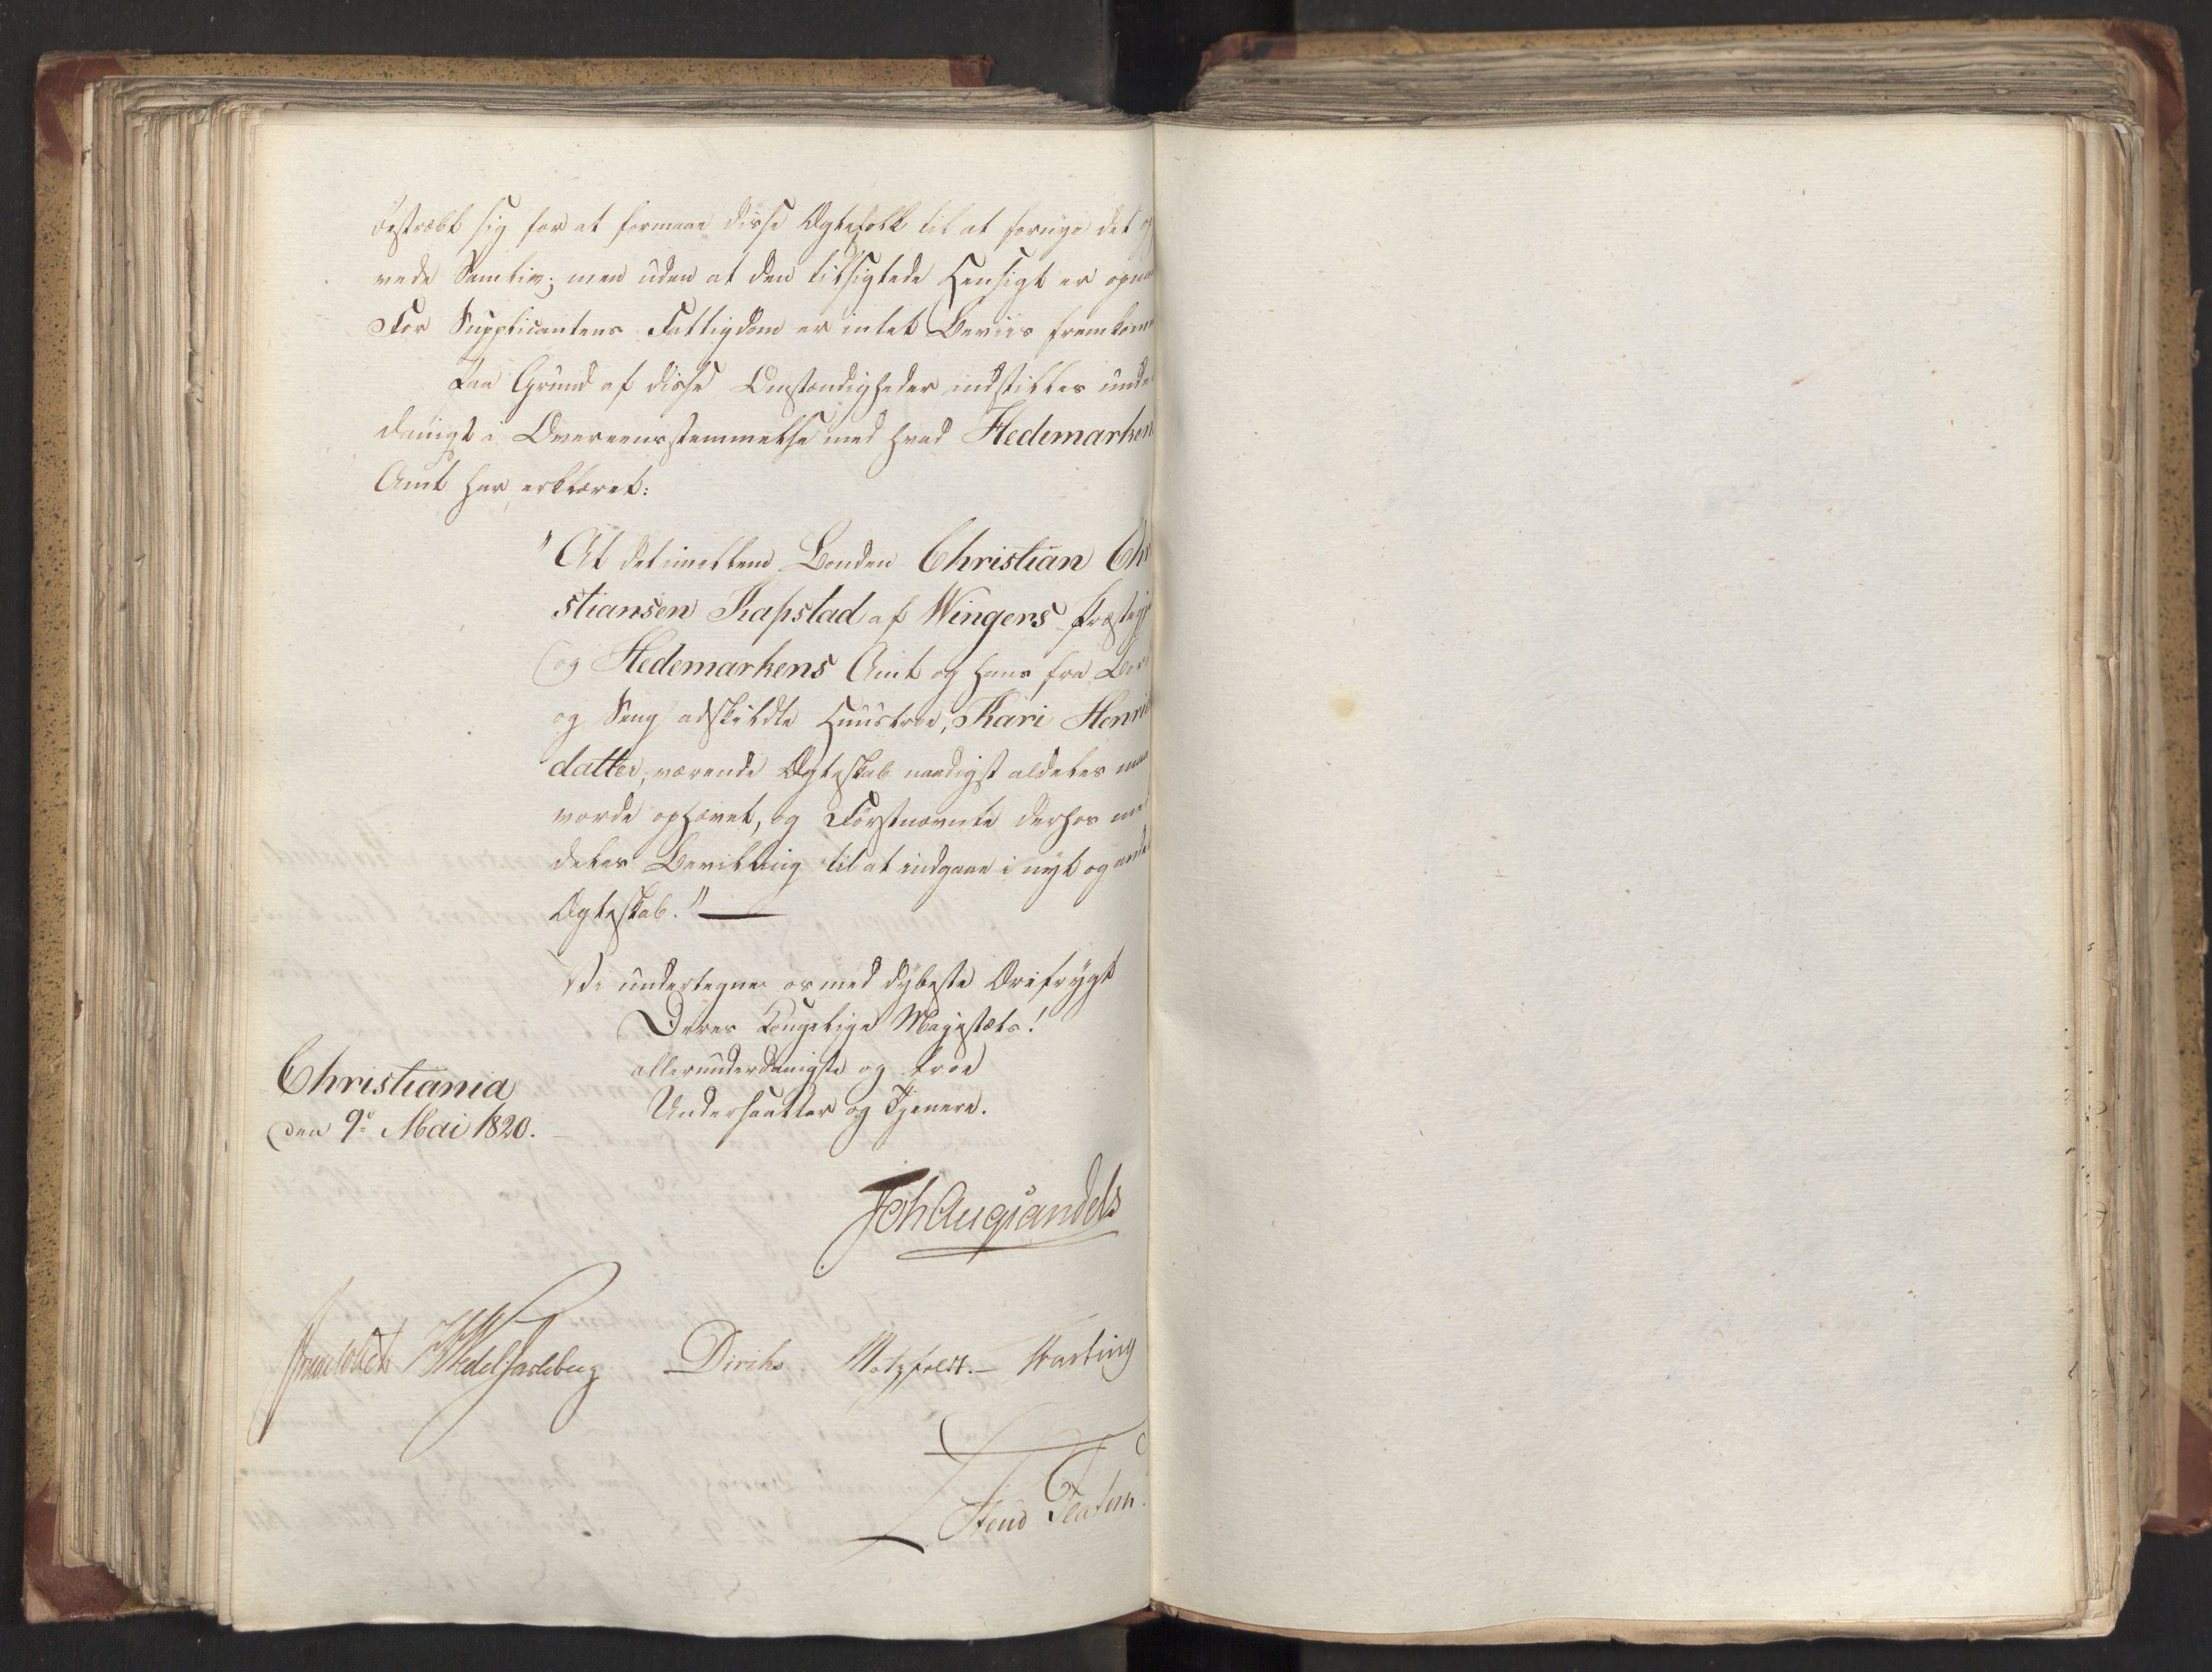 bestræbt sig for at formaae disse Ægtefolk til at fornye det
vede Samliv; men uden at den tilsigtede Hensigt er opna
For Supplicantens Fattigdom er intet Beviis fremkom
Paa Grund af disse Omstændigheder indstilles unde
danigst i Overeensstemmelse med hvad Hedemarken
Amt har erklæret:
"At det imellem Bonden Christian Chr
stiansen Rapstad af Wingers Præstegj
og Hedemarkens Amt og hans fra Bord
og Seng adskildte Huustroe, Kari Henri
datter, værende Ægteskab naadigst aldeles maa
vorde ophævet, og Førstnævnte derhos med
deles Bevilling til at indgaae i nyt og andet
Ægteskab."
Vi undertegne os med dybeste Ærefrygt
Deres Kongelige Majestæts!
allerunderdanigste og troe
Undersaatter og Tjenere.
Christiania
den 9de Mai 1820.
Joh Aug Sandels
Sommerhielm HWedel Jarlsberg Diriks Motzfeldt. Fasting